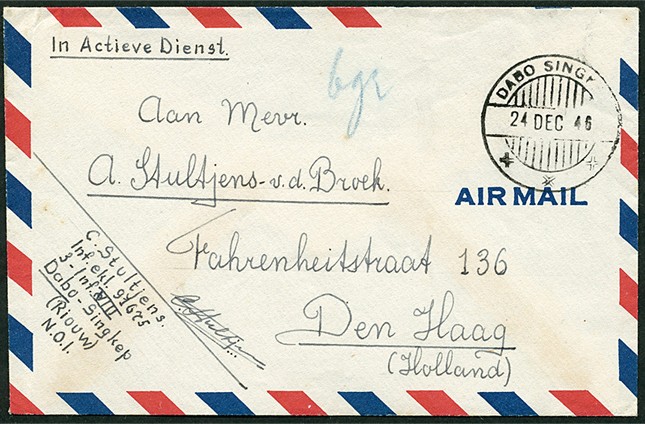 In Actieve Dienst.
bgr
DABO SINGK
24 DEC 46
Aan Mevr.
A. Stultjens-v.d. Broek.
AIR MAIL
Fahrenheitstraat 136
Den Haag
(Holland)
C. Stultjens.
Inf. ekl. 97625
3-Inf. VIII
Dabo-Singkep
(Riouw)
N.O.I.